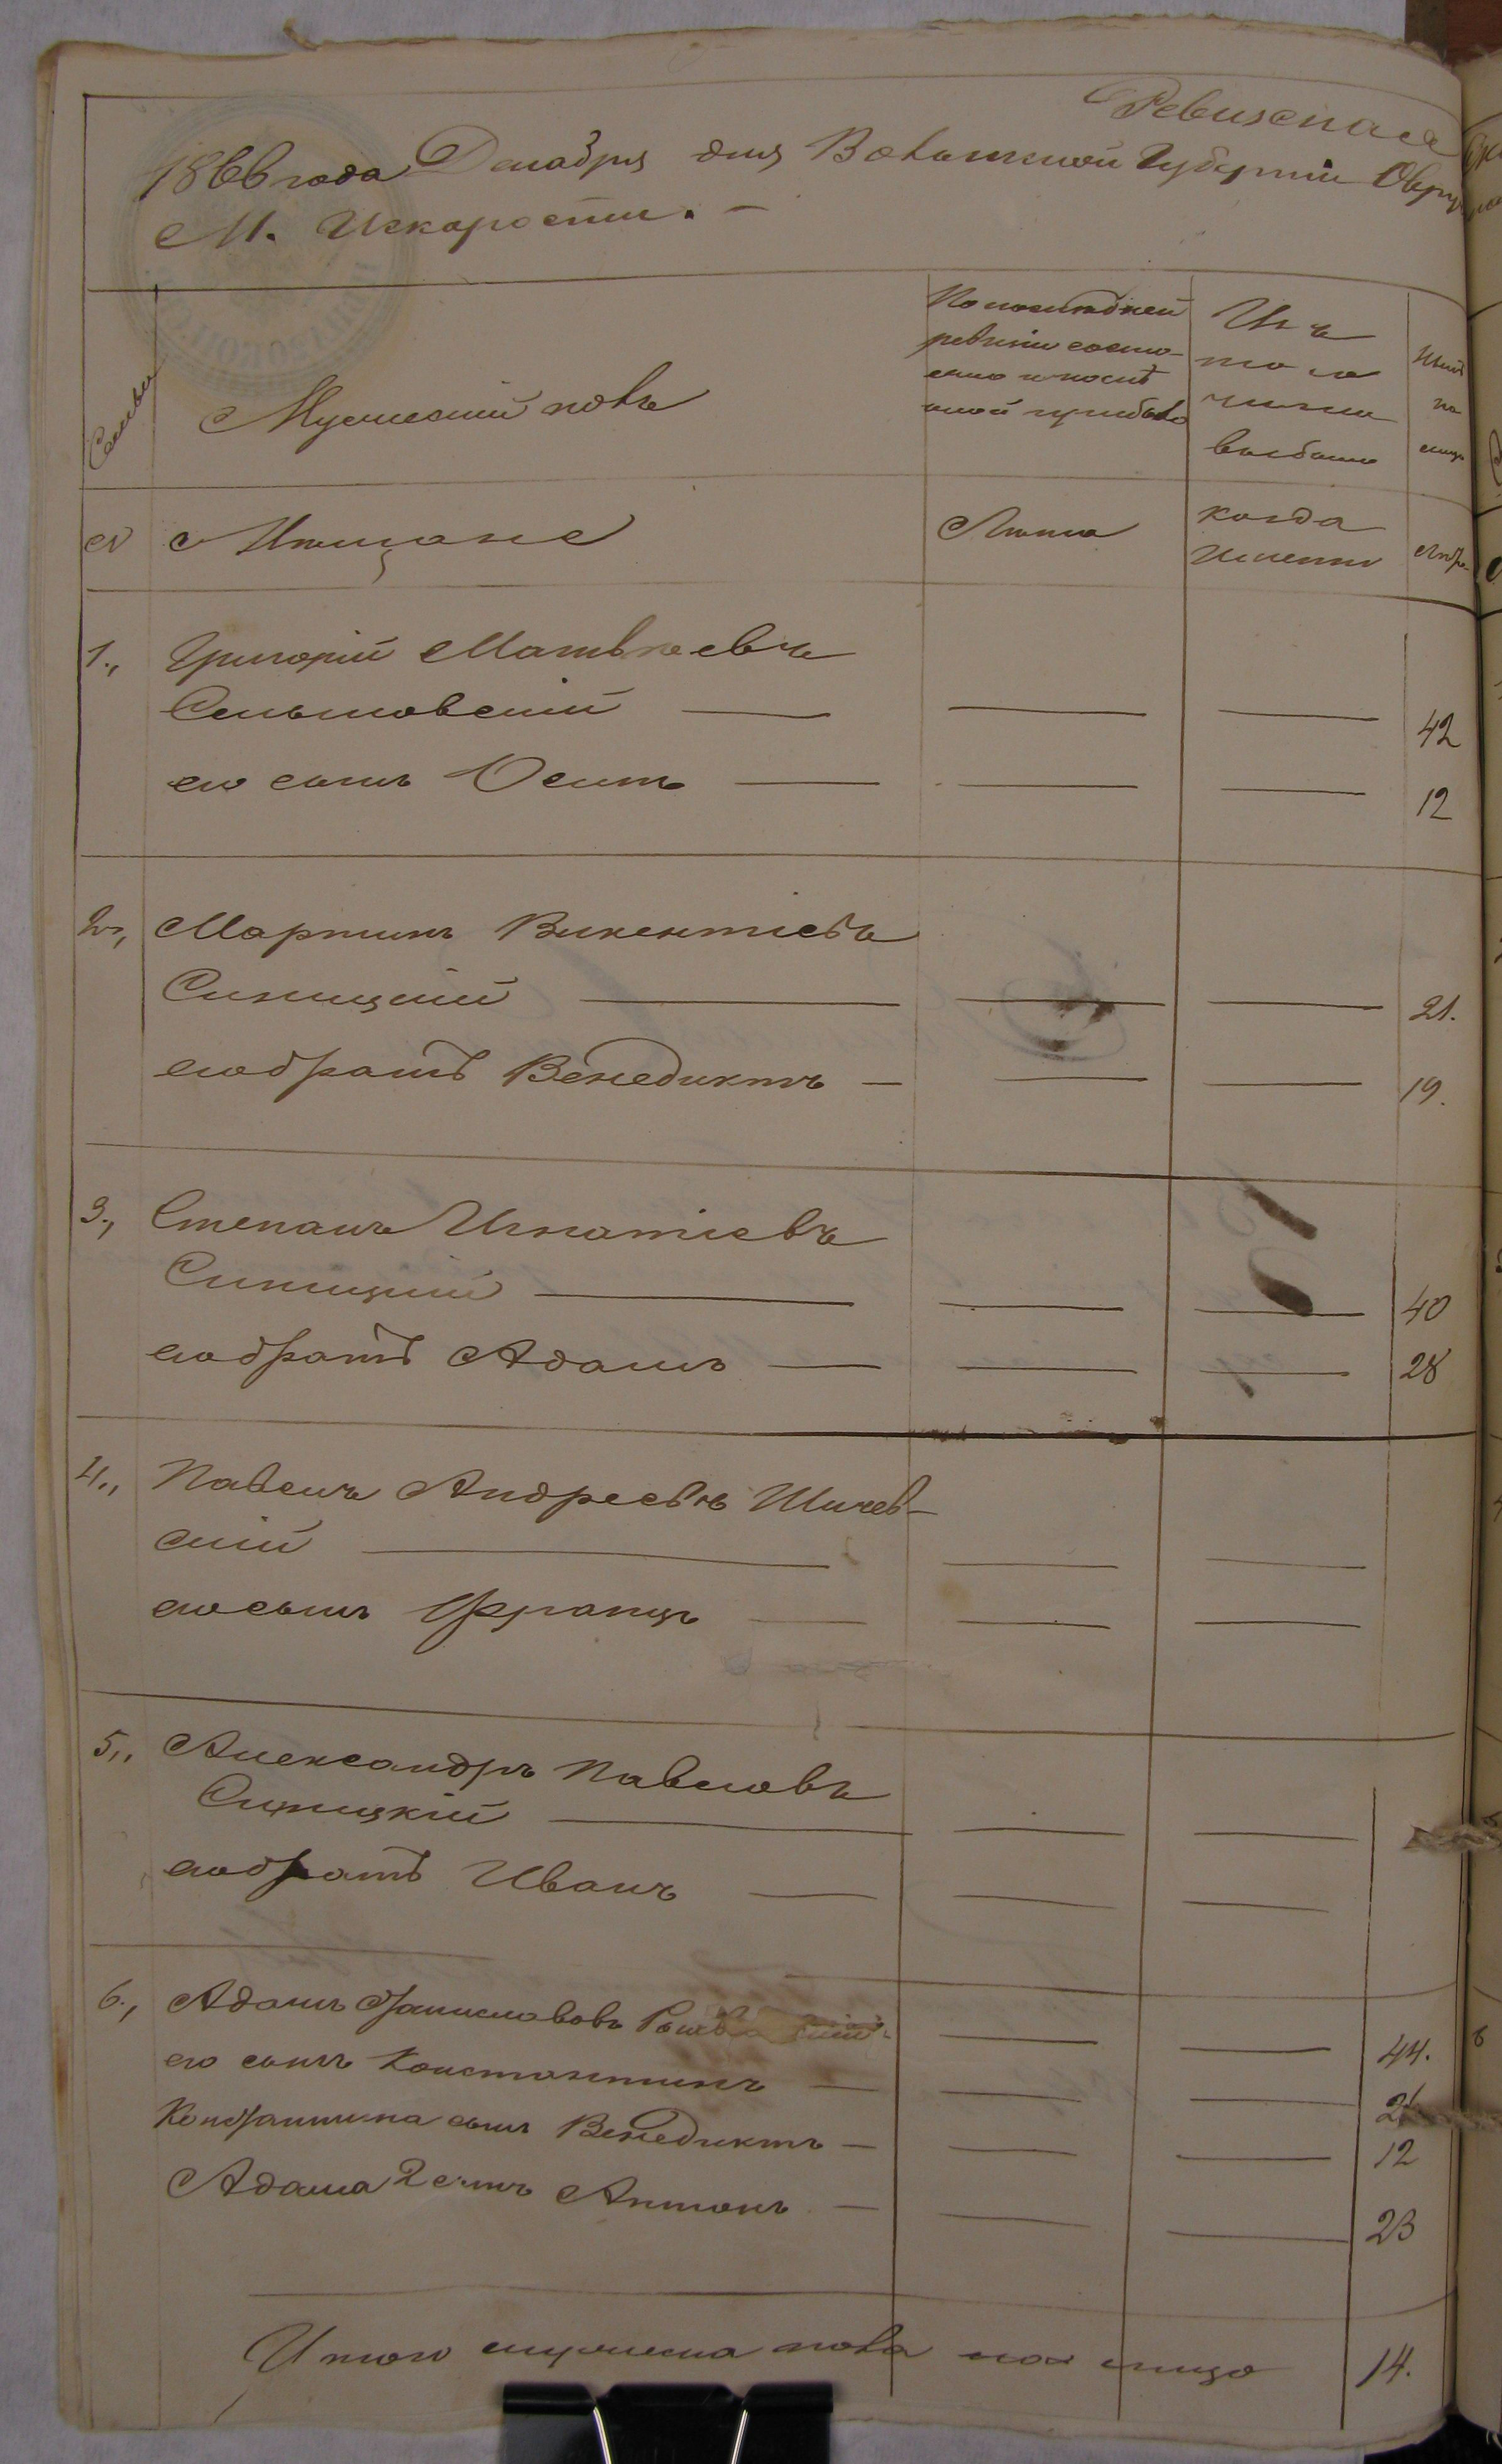 Ревизская
1866 года Декабря дня Волынской Губернии Овру
М. Искорости. —
Семьи
Мужеский полъ
По последней
ревизіи состо-
яло и после
оной прибыло
Изъ
того
числа
выбыло
Ныне
на
лицо
N
Мещане
Лета
когда
именно
Лета
1., Григорій Матвеевъ
Сельмовский — — — 42
его сынъ Осипъ — — — 12
2., Мартинъ Викентіевъ
Синицкий — — — 21.
его братъ Бенедиктъ — — — 19.
3., Степанъ Игнатіевъ
Синицкий — — — 40
его братъ Адамъ — — — 28
4., Павелъ Андреевъ Шичев-
скій — — —
его сынъ Францъ — — —
5., Александръ Павловъ
Синицкій — — —
его братъ Иванъ — — —
6., Адамъ Станиславовъ — — 44.
его сынъ Константинъ — — — 21
Константина сынъ Бенедиктъ — — — 12
Адама 2 сынъ Антонъ — — — 23
Итого мужеска пола на лицо 14.